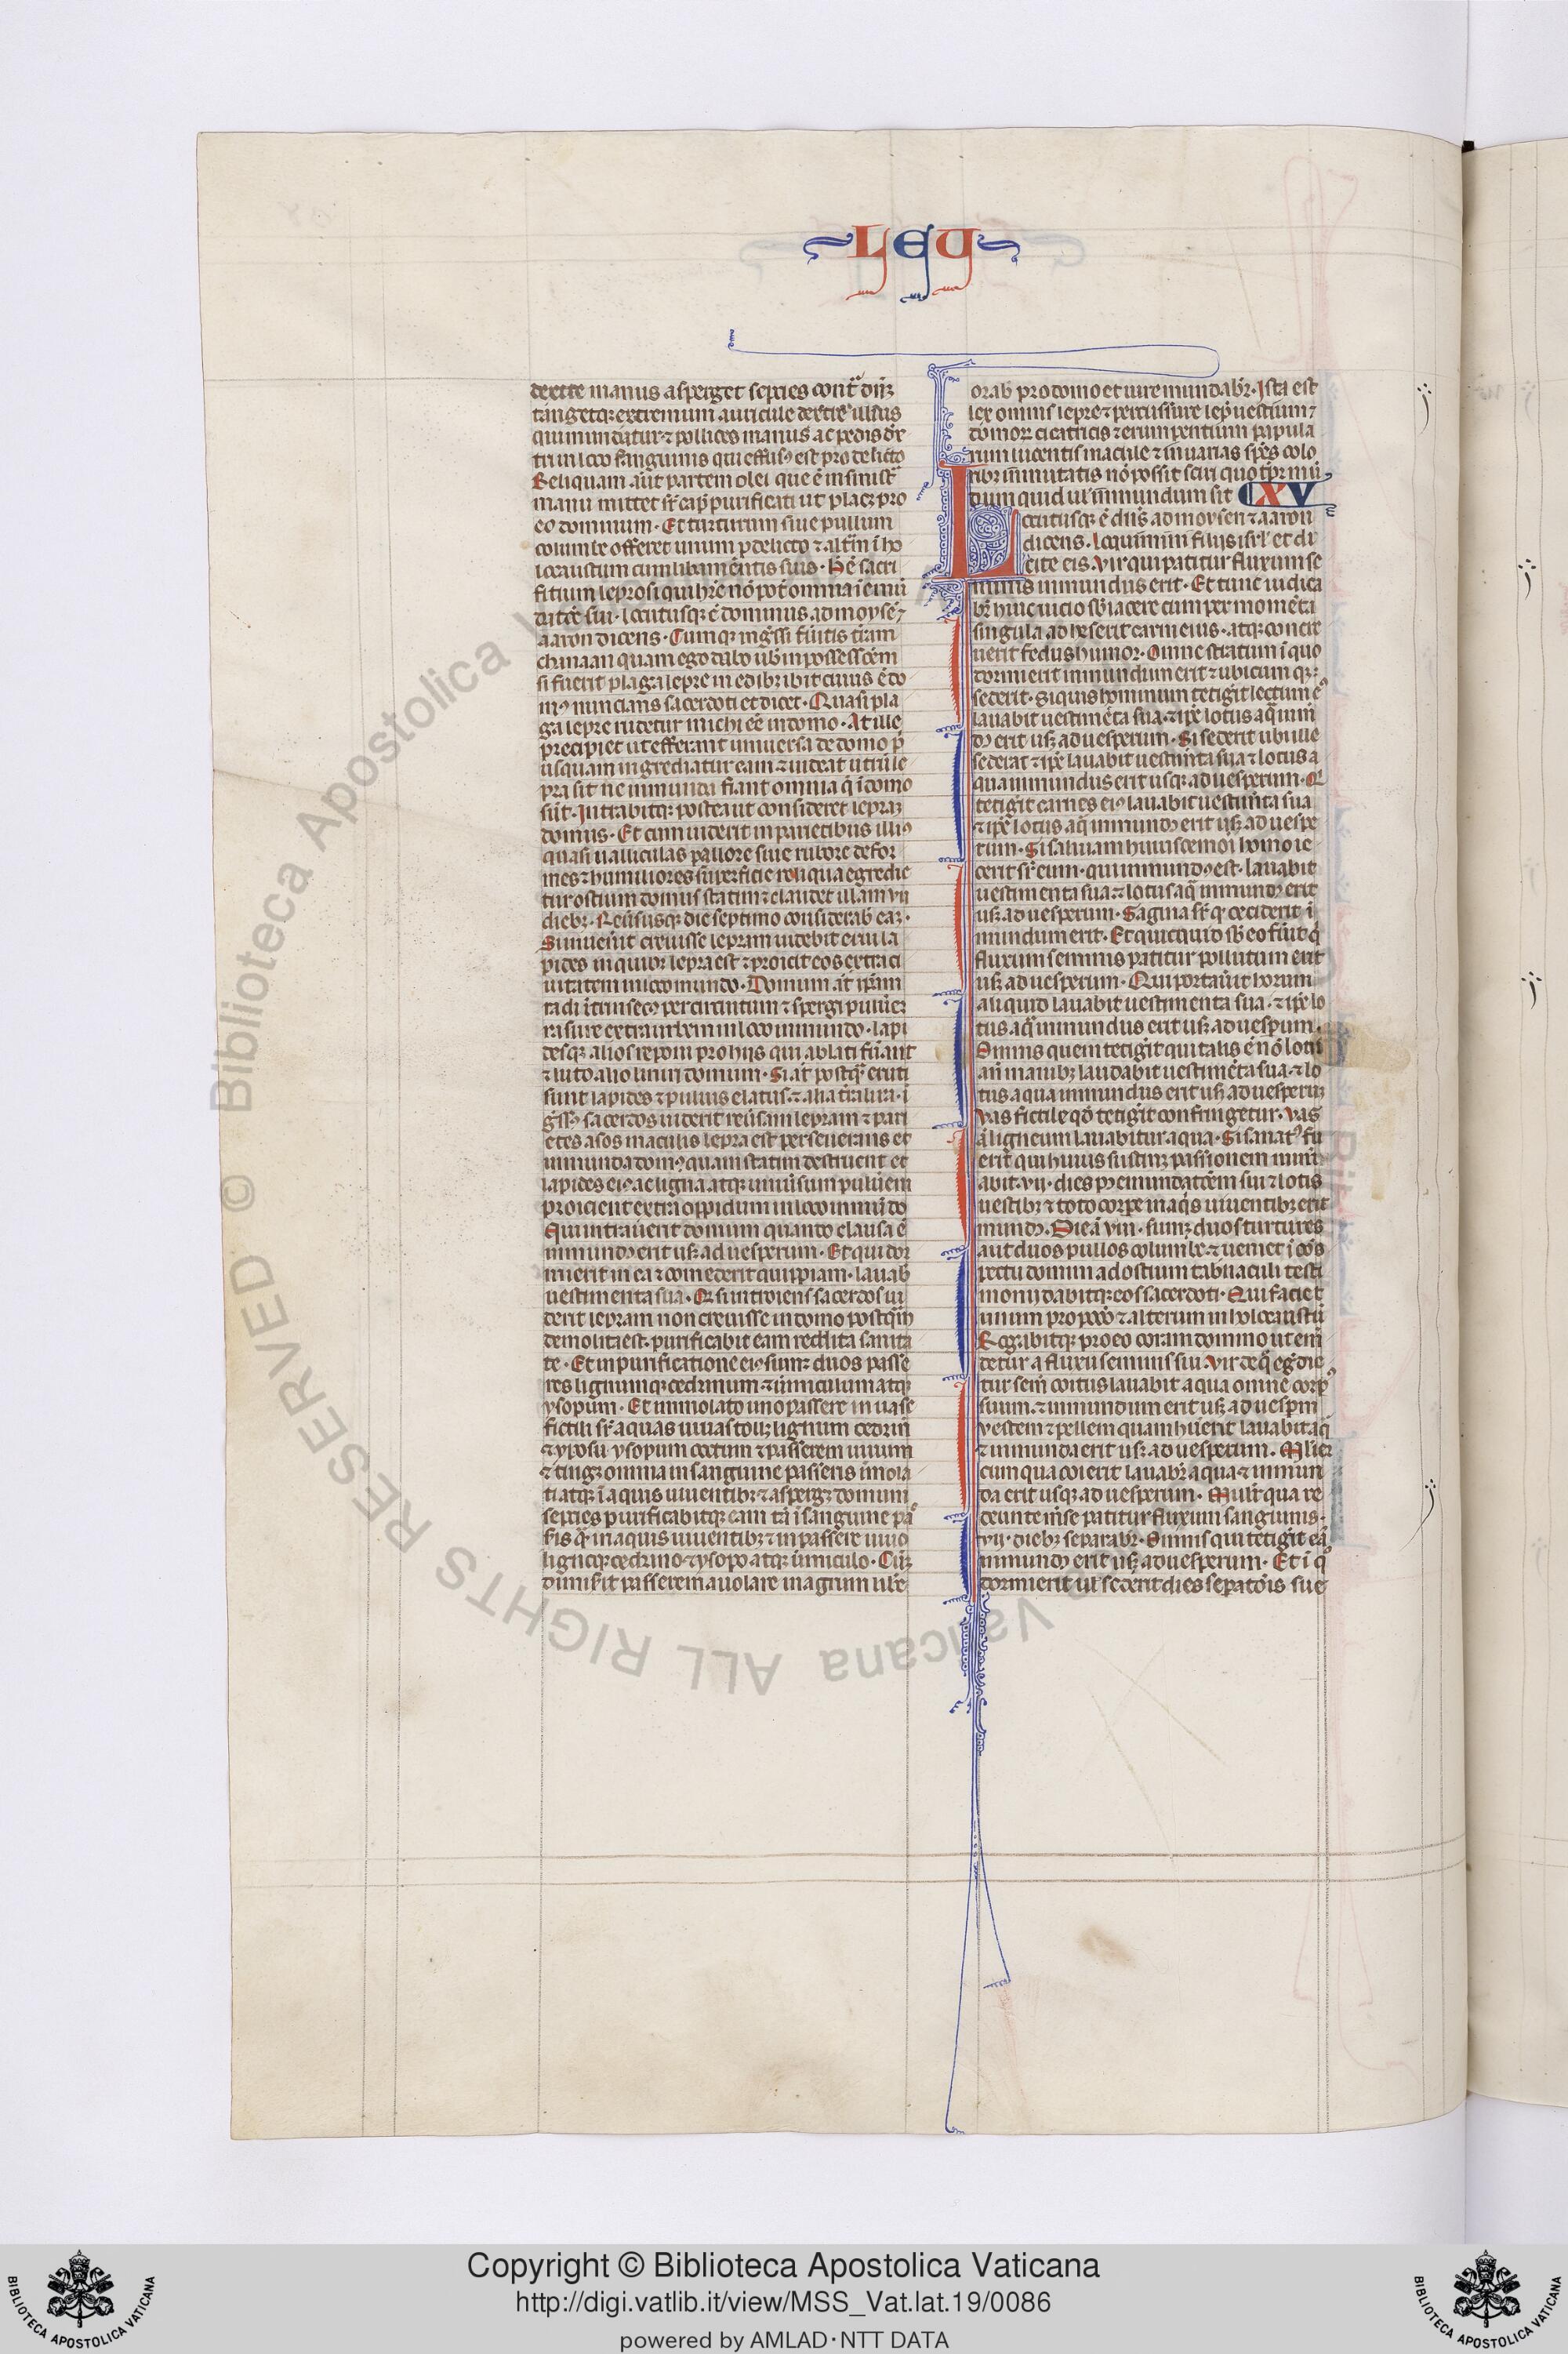 LEU
dextre manus asperget sepcies cont̃ dñꝫ
tangetqꝫ extremum auricule dextre illius
qui mundatur ⁊ pollices manus ac pedis dex
tri in loco sanguinis qui effusꝰ est pro delicto
Reliquam aũt partem olei que ẽ in sinist̃
manu mittet sr̃ cap̃ purificati ut placꝫ pro
eo dominum · Et turturum siue pullum
columbe offeret unum p delicto ⁊ altm̃ ĩ ho
locaustum cum libamẽntis suis · Hẽ sacri
ficium leprosi qui hr̃e nõ pot̃ omnia ĩ emũ
datõe sui · locutusqꝫ ẽ dominus ad moysẽ ⁊
aaron dicens · Cumqꝫ ingr̃ssi fũitis tr̃am
chanaan quam ego dabo uob̃ in possessiõem
si fuerit plaga lepre in edibꝫ ibit cuius ẽ do
mꝰ nuncians sacerdoti et dicet · Quasi pla
ga lepre uidetur michi eẽ in domo · At ille
precipiet ut efferant uniuersa de domo p̃
usquam ingrediatur eam ⁊ uideat utrũ le
pra sit ne inmunda fiant omnia q̃ ĩ domo
sũt · Intrabitqꝫ postea ut consideret lepraꝫ
domus · Et cum uiderit in parietibus illiꝰ
quasi ualliculas pallore siue rubore defor
mes ⁊ humiliores superficie reliqua egredie
tur ostium domus statim ⁊ claudet illam vii
diebꝫ · Reũsusqꝫ die septimo considerab̃ eaꝫ ·
Si inuen̄it creuisse lepram iubebit erui la
pides in quibꝫ lepra est ⁊ proicit eos extra ci
uitatem in loco inmundo · Domum aũt ip̃am
radi ĩtrinsecꝰ per circuitum ⁊ spergi puluerẽ
rasure extra urbem in loco inmundo · lapi
desqꝫ alios reponi pro hiis qui ablati fũant
⁊ luto alio liniri domum · Si aũt postq̃ eruti
sunt lapides ⁊ puluis elatus ⁊ alia tr̃a litura · ĩ
gr̃ssꝰ sacerdos uiderit reũsam lepram ⁊ pari
etes asos maculis lepra est perseuerans et
inmunda domꝰ quam statim destruent et
lapides eiꝰ ac ligna atqꝫ uniũsum puluerem
proicient extra oppidum in loco inmũdo
Qui intrauerit domum quando clausa ẽ
inmundꝰ erit usqꝫ ad uesperum · Et qui dor
mierit in ea ⁊ comederit quippiam · lauab̃
uestimenta sua · Qr̃ si introiens sacerdos ui
derit lepram non creuisse in domo postq̃m
demolita est · purificabit eam reddita sanita
te · Et in purificatione eiꝰ sumꝫ duos passe
res lignumqꝫ cedrinum ⁊ uermiculum atqꝫ
ysopum · Et immolato uno passere in uase
fictili sr̃ aquas uiuas tollꝫ lignum cedrinũ
⁊ yposu ysopum coctum ⁊ passerem uiuum
⁊ tingꝫ omnia in sanguine passeris ĩmola
ti atqꝫ ĩ aquis uiuentibꝫ ⁊ aspergꝫ domum
sepcies purificabitqꝫ eam tã ĩ sanguine pas
sis q̃ in aquis uiuentibꝫ ⁊ in passere uiuo
lignoqꝫ cedrino ⁊ ysopo atqꝫ ũmiculo · Cũqꝫ
dimiserit passerem auolare in agrum libe
orab̃ pro domo et iure mundabꝛ̃ · Ista est
lex omnis lepre ⁊ percussure lep̃ uestium ⁊
domorꝝ cicatricis ⁊ erumpentium papula
rum lucentis macule ⁊ in uarias sp̃es colo
ribꝫ ĩmutatis nõ possit sciri quo tp̃r mũ
dum quid ul̃ inmundum sit CXV
Locutusqꝫ ẽ dñs ad moysen ⁊ aaron
dicens · loquimini filiis isrl̃ et di
cite eis · Vir qui patitur fluxum se
minis inmundus erit · Et tunc iudica
bꝛ̃ huic uicio sb̃iacere cum per momẽta
singula adheserit carni eius · atqꝫ concre
uerit fedus humor · Omne stratum ĩ quo
dormierit inmundum erit ⁊ ubicumqꝫ
sederit · Si quis hominum tetigerit lectum eꝰ
lauabit uestimẽta sua · ⁊ ip̃e lotus aq̃ inmũ
dꝰ erit usqꝫ ad uesperum · Si sederit ubi ille
sederat ⁊ ip̃e lauabit uestimẽta sua ⁊ lotus a
qua inmundus erit usqꝫ ad uesperum · Qr̃
tetigit carnes eiꝰ lauabit uestim̃ta sua
⁊ ip̃e lotus aq̃ inmundꝰ erit usqꝫ ad uespe
rum · Si saliuam huiuscemoi homo ie
cerit sr̃ eum · qui inmundꝰ est · lauabit
uestimenta sua ⁊ lotus aq̃ inmundꝰ erit
usqꝫ ad uesperum · Sagma sr̃ qꝫ cecid̃it ĩ
mundum erit · Et quicquid sb̃ eo fũit q̃
fluxum seminis patitur pollutum erit
usqꝫ ad uesperum · Qui portaũit horum
aliquid lauabit uestimenta sua · ⁊ ip̃e lo
tus aq̃ inmundus erit usqꝫ ad uesp̃um ·
Omnis quem tetigit qui talis ẽ nõ lotis
añ manibꝫ laudabit uestimẽta sua ⁊ lo
tus aqua inmundus erit usqꝫ ad uesperuꝫ
vas fictile qđ tetig̃it confringetur · vas
aũ ligneum lauabitur aqua · Si sanatꝰ fu
erit qui huius sustinꝫ passionem num̃
abit · vii · dies pꝰ emundatõem sui ⁊ lotis
uestibꝫ ⁊ toto corpe in aq̃is uiuentibꝫ erit
mundꝰ · Die aũ viii · sumꝫ duos turtures
aut duos pullos columbe ⁊ ueniet ĩ cõs
pectu domini ad ostium tabnaculi testi
monij dabitqꝫ eos sacerdoti · Qui faciet
unum pro pcc̃o ⁊ alterum in holocaustũ
Rogabitqꝫ pro eo coram domino ut emũ
detur a fluxu seminis sui · vir de q̃ eg̃die
tur sem̃ coitus lauabit aqua omne corpꝰ
suum · ⁊ inmundum erit usqꝫ ad uesp̃m
vestem ⁊ pellem quam hũerit lauabit aq̃
⁊ inmunda erit usqꝫ ad uesperum · Ml̃ier
cum qua coierit lauabꝛ̃ aqua ⁊ inmun
da erit usqꝫ ad uesperum · Mulier̃ qua re
deunte m̃se patitur fluxum sanguinis ·
vij · diebꝫ separabꝛ̃ · Omnis qui tetigit eã
inmundꝰ erit usqꝫ ad uesperum · Et ĩ q̃
dormierit ul̃ sederit dies sepatõis sue
© Biblioteca Apostolica Vaticana ALL RIGHTS RESERVED
Copyright © Biblioteca Apostolica Vaticana
http://digi.vatlib.it/view/MSS_Vat.lat.19/0086
powered by AMLAD·NTT DATA
BIBLIOTECA APOSTOLICA VATICANA
BIBLIOTECA APOSTOLICA VATICANA